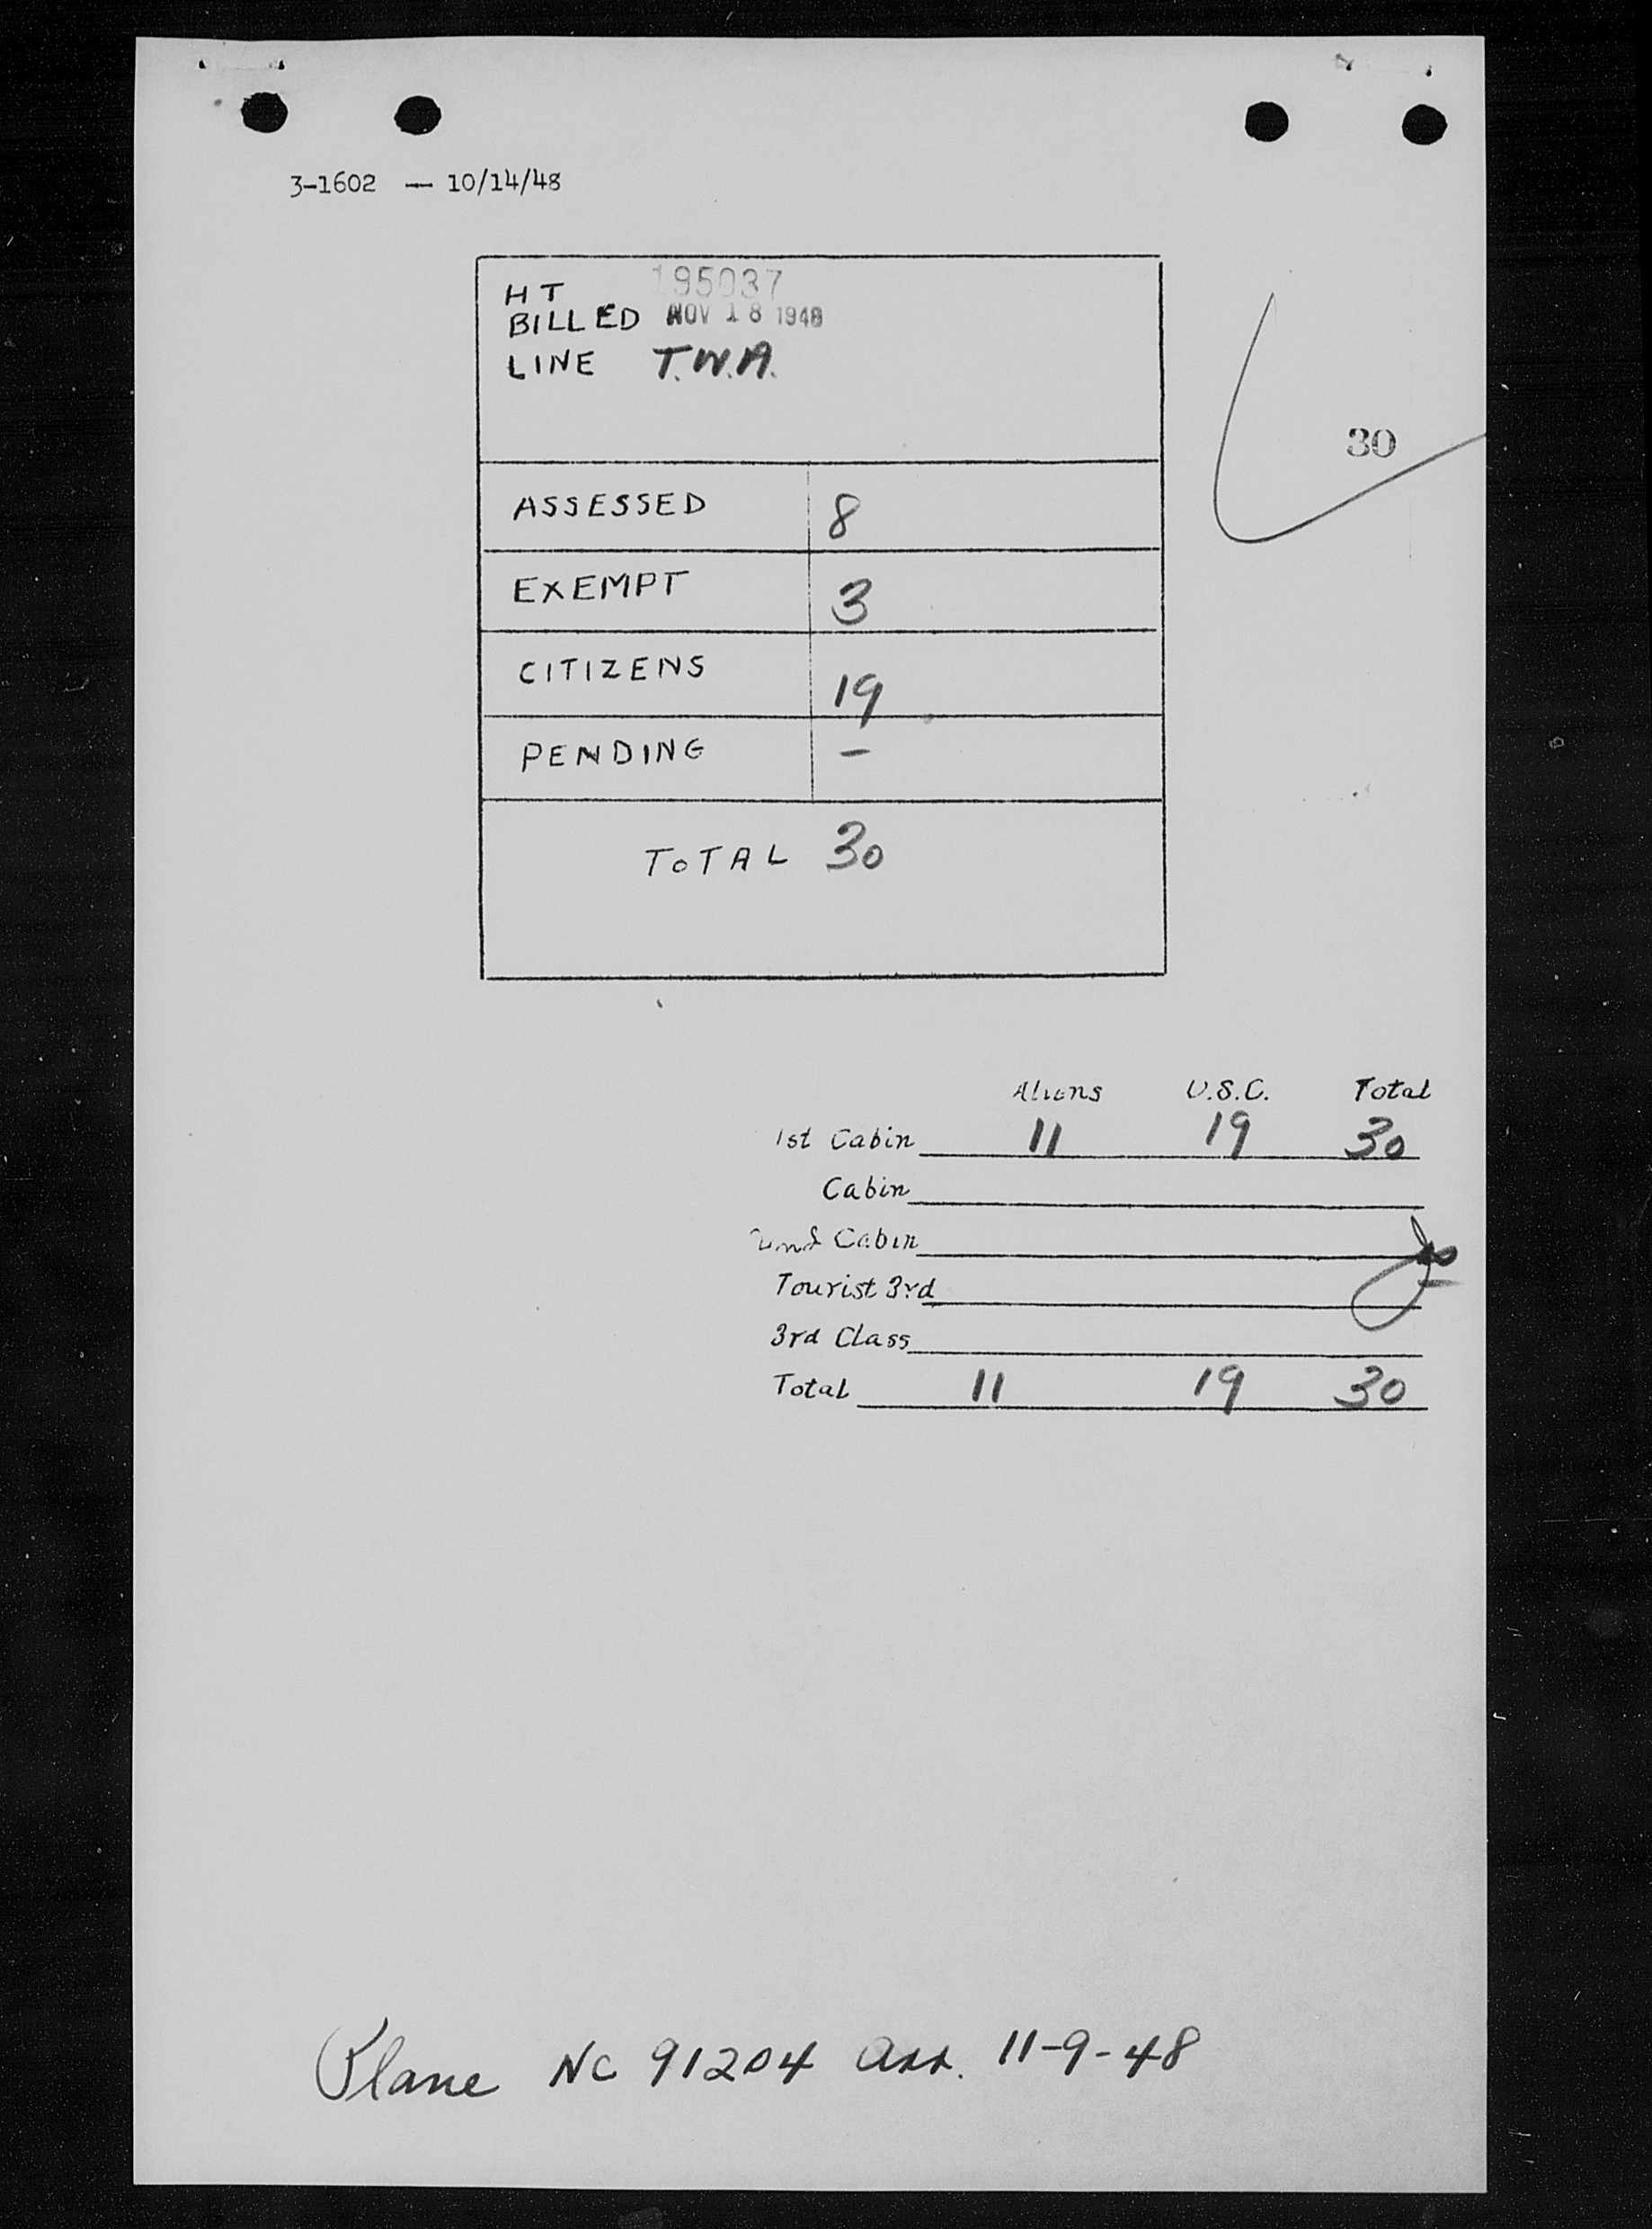 3-1602 — 10/14/48
HT 195037
BILLED NOV 18 1948
LINE T.W.A.
30
ASSESSED 8
EXEMPT 3
CITIZENS 19
PENDING –
TOTAL 30
Aliens U.S.C. Total
1st Cabin 11 19 30
Cabin
2nd Cabin
Tourist 3rd
3rd Class
Total 11 19 30
Plane NC 91204 arr. 11-9-48